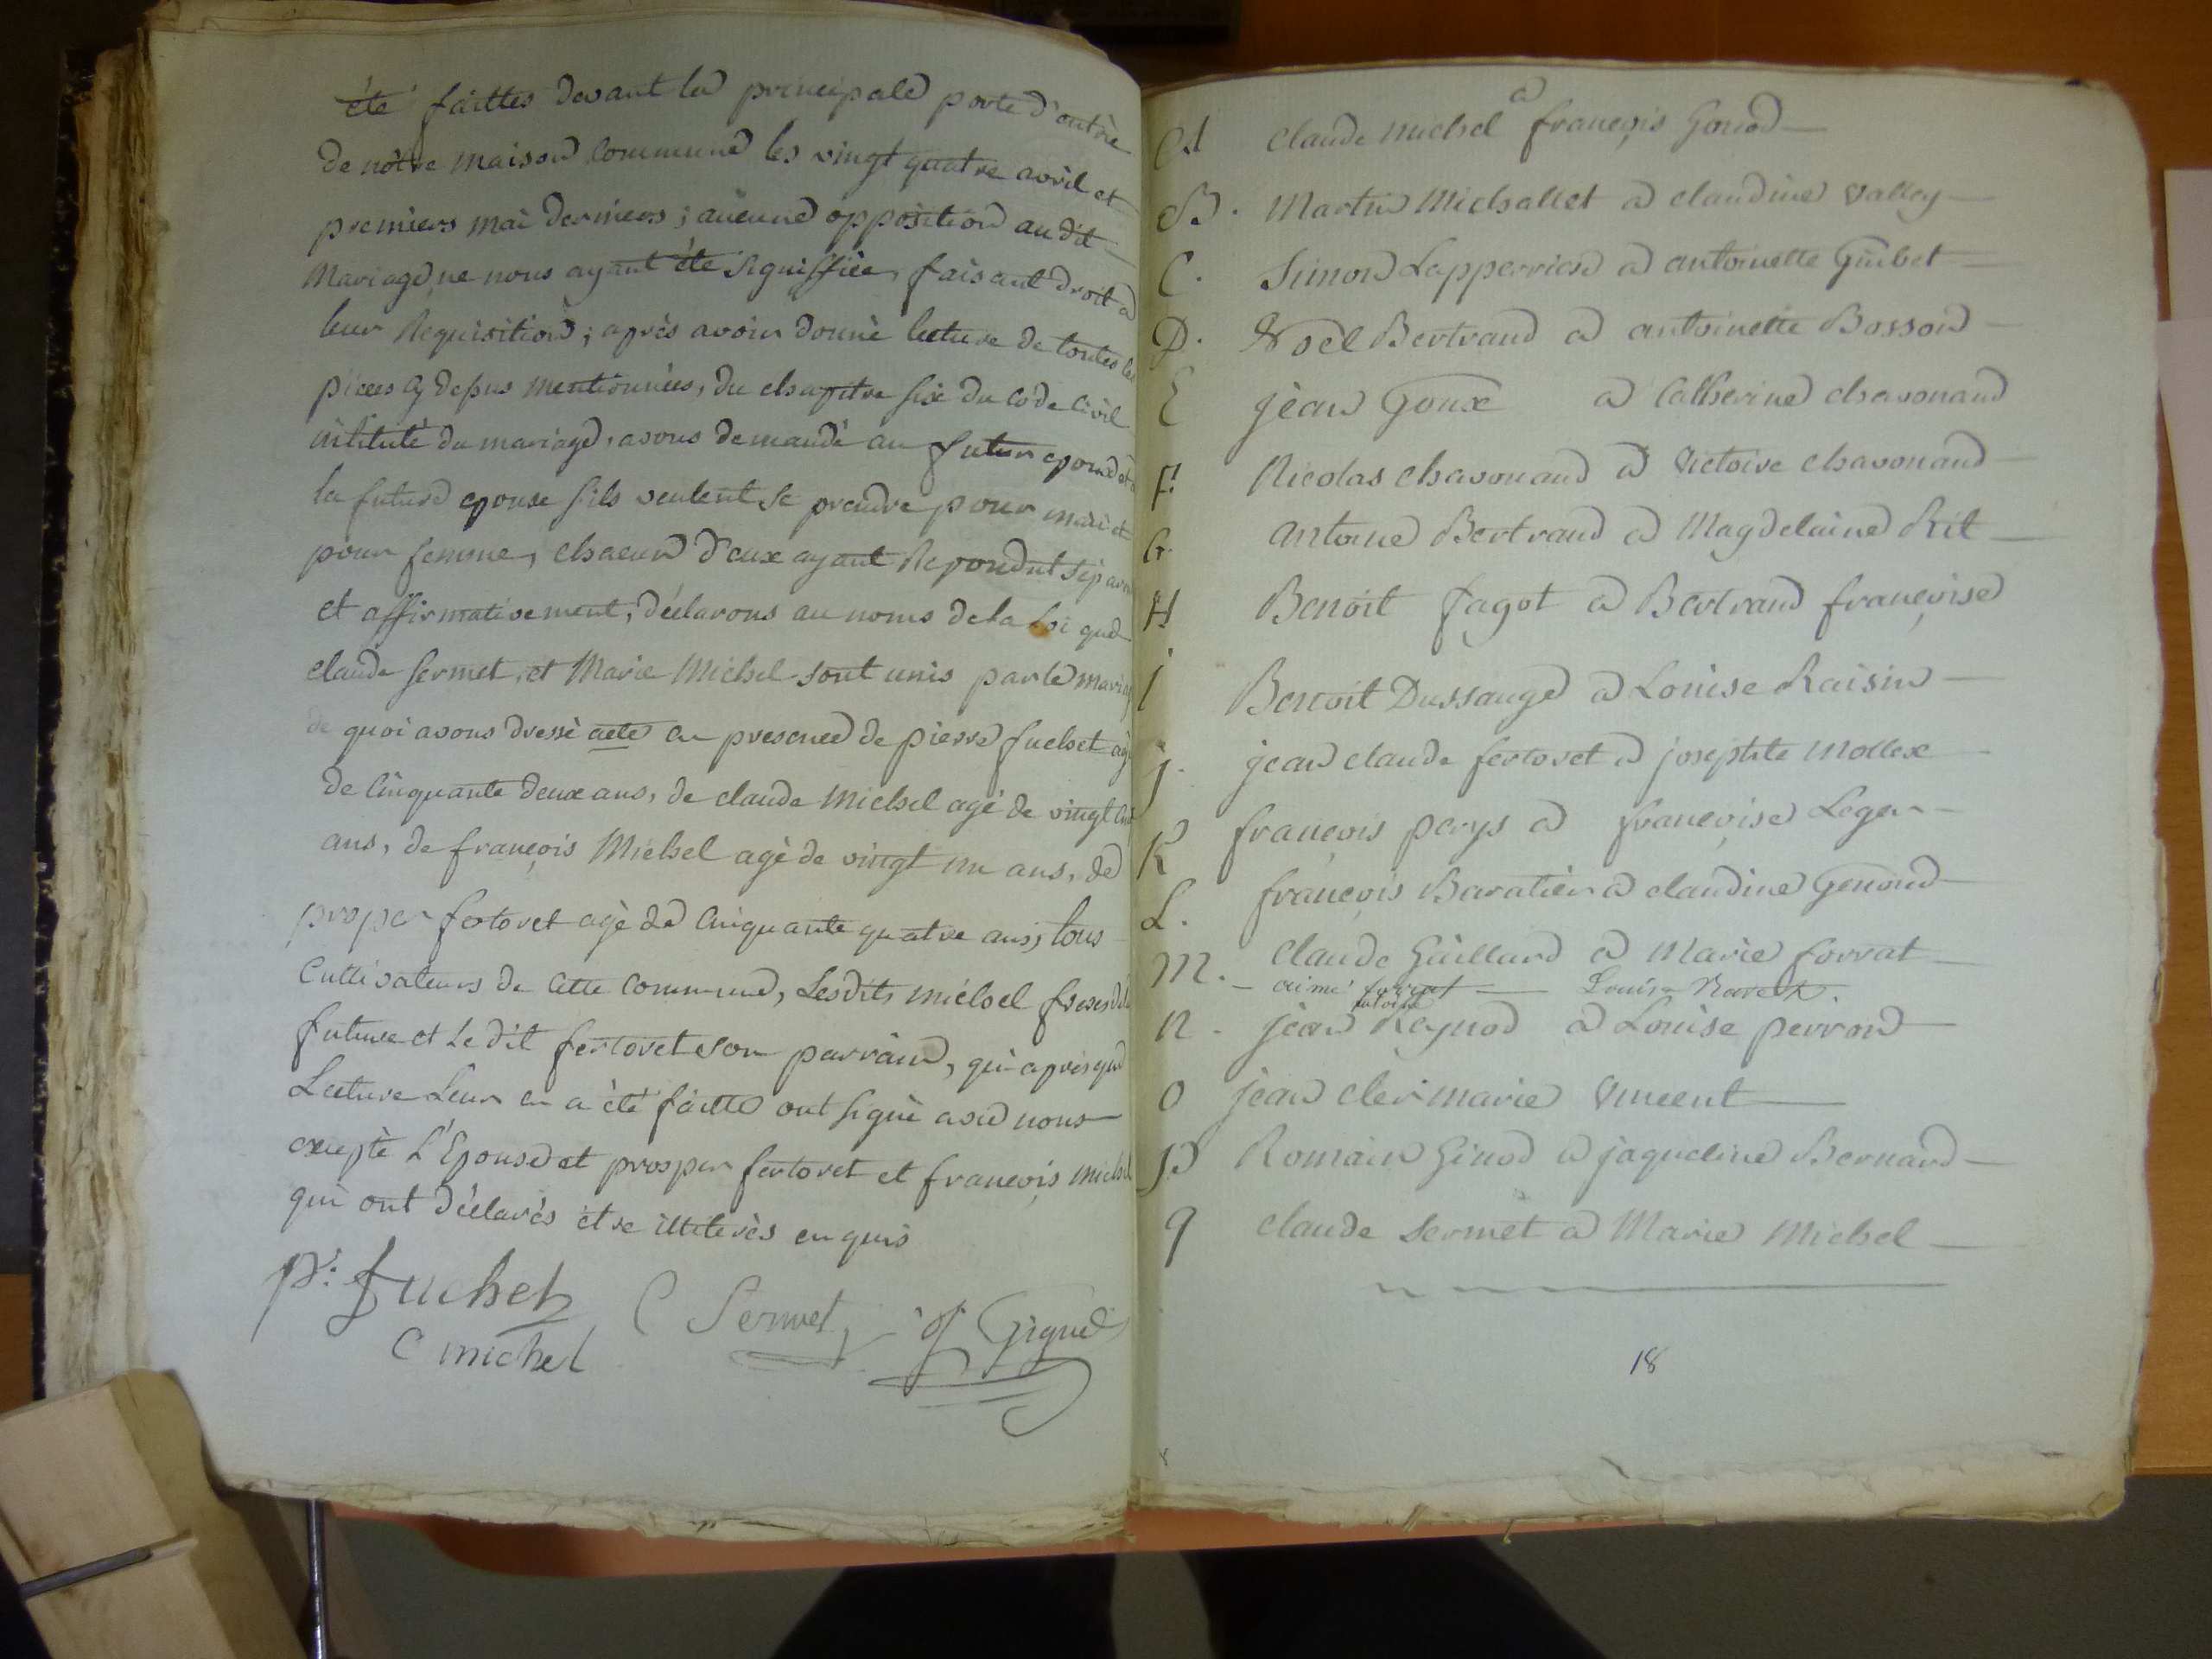 été faittes devant la principale porte d'entrée
de nôtre maison Commune les vingt quatre avril et
premiers mai derniers; aucune opposition au dit
Mariage ne nous ayant été signiffiée, faisant droit a
leur Requisition; après avoir donné lecture de toutes les
pieces cy dessus mentionnées, du chapitre six du code Civil
intitulé du mariage, avons demandé au futur epoux et a
la future epouse s'ils veulent se prendre pour mari et
pour femme, chacun d'eux ayant Repondut séparem
et affirmativement, déclarons au noms de la Loi que
claude Sermet, et Marie Michel sont unis par le mariag
de quoi avons dressé acte en presence de pierre fuchet agé
de Cinquante deux ans, de claude Michel agé de vingt cinq
ans, de françois Michel agé de vingt un ans, de
prosper fertoret agé de Cinquante quatre ans, tous
Cultivateurs de Cette Commune, Lesdits michel freres de la
future et Le dit fertoret son parrain, qui après que
Lecture Leur en a été faitte ont signé avec nous
excepté L'Epouse et prosper fertoret et françois michel
qui ont déclarés etre illiterés enquis
p: fuchet C Sermet Gigue
C michel
A claude michel a françois Gonod
B. Martin Michallet a claudine Valley
C. Simon Lapperriere a antoinette Guibet
D. Noel Bertrand a antoinette Bosson
E jean Goux a Catherine chavonand
F. Nicolas chavonand a Victoire chavonand
G. antoine Bertrand a Magdelaine Rit
H Benoit fagot a Bertrand françoise
i Benoit Dussauge a Louise Raisin
j. jean claude fertoret a josephte Mollex
K françois perys a françoise Leger
L. françois Baratier a claudine Genoud
M. claude Gaillard a Marie forrat
aimé forrat Louise
n. jean antoine Reynod a Louise perron
O jean cler marie Vincent
P Romain Ginod a jaqueline Bernard
q claude Sermet a Marie Michel
18